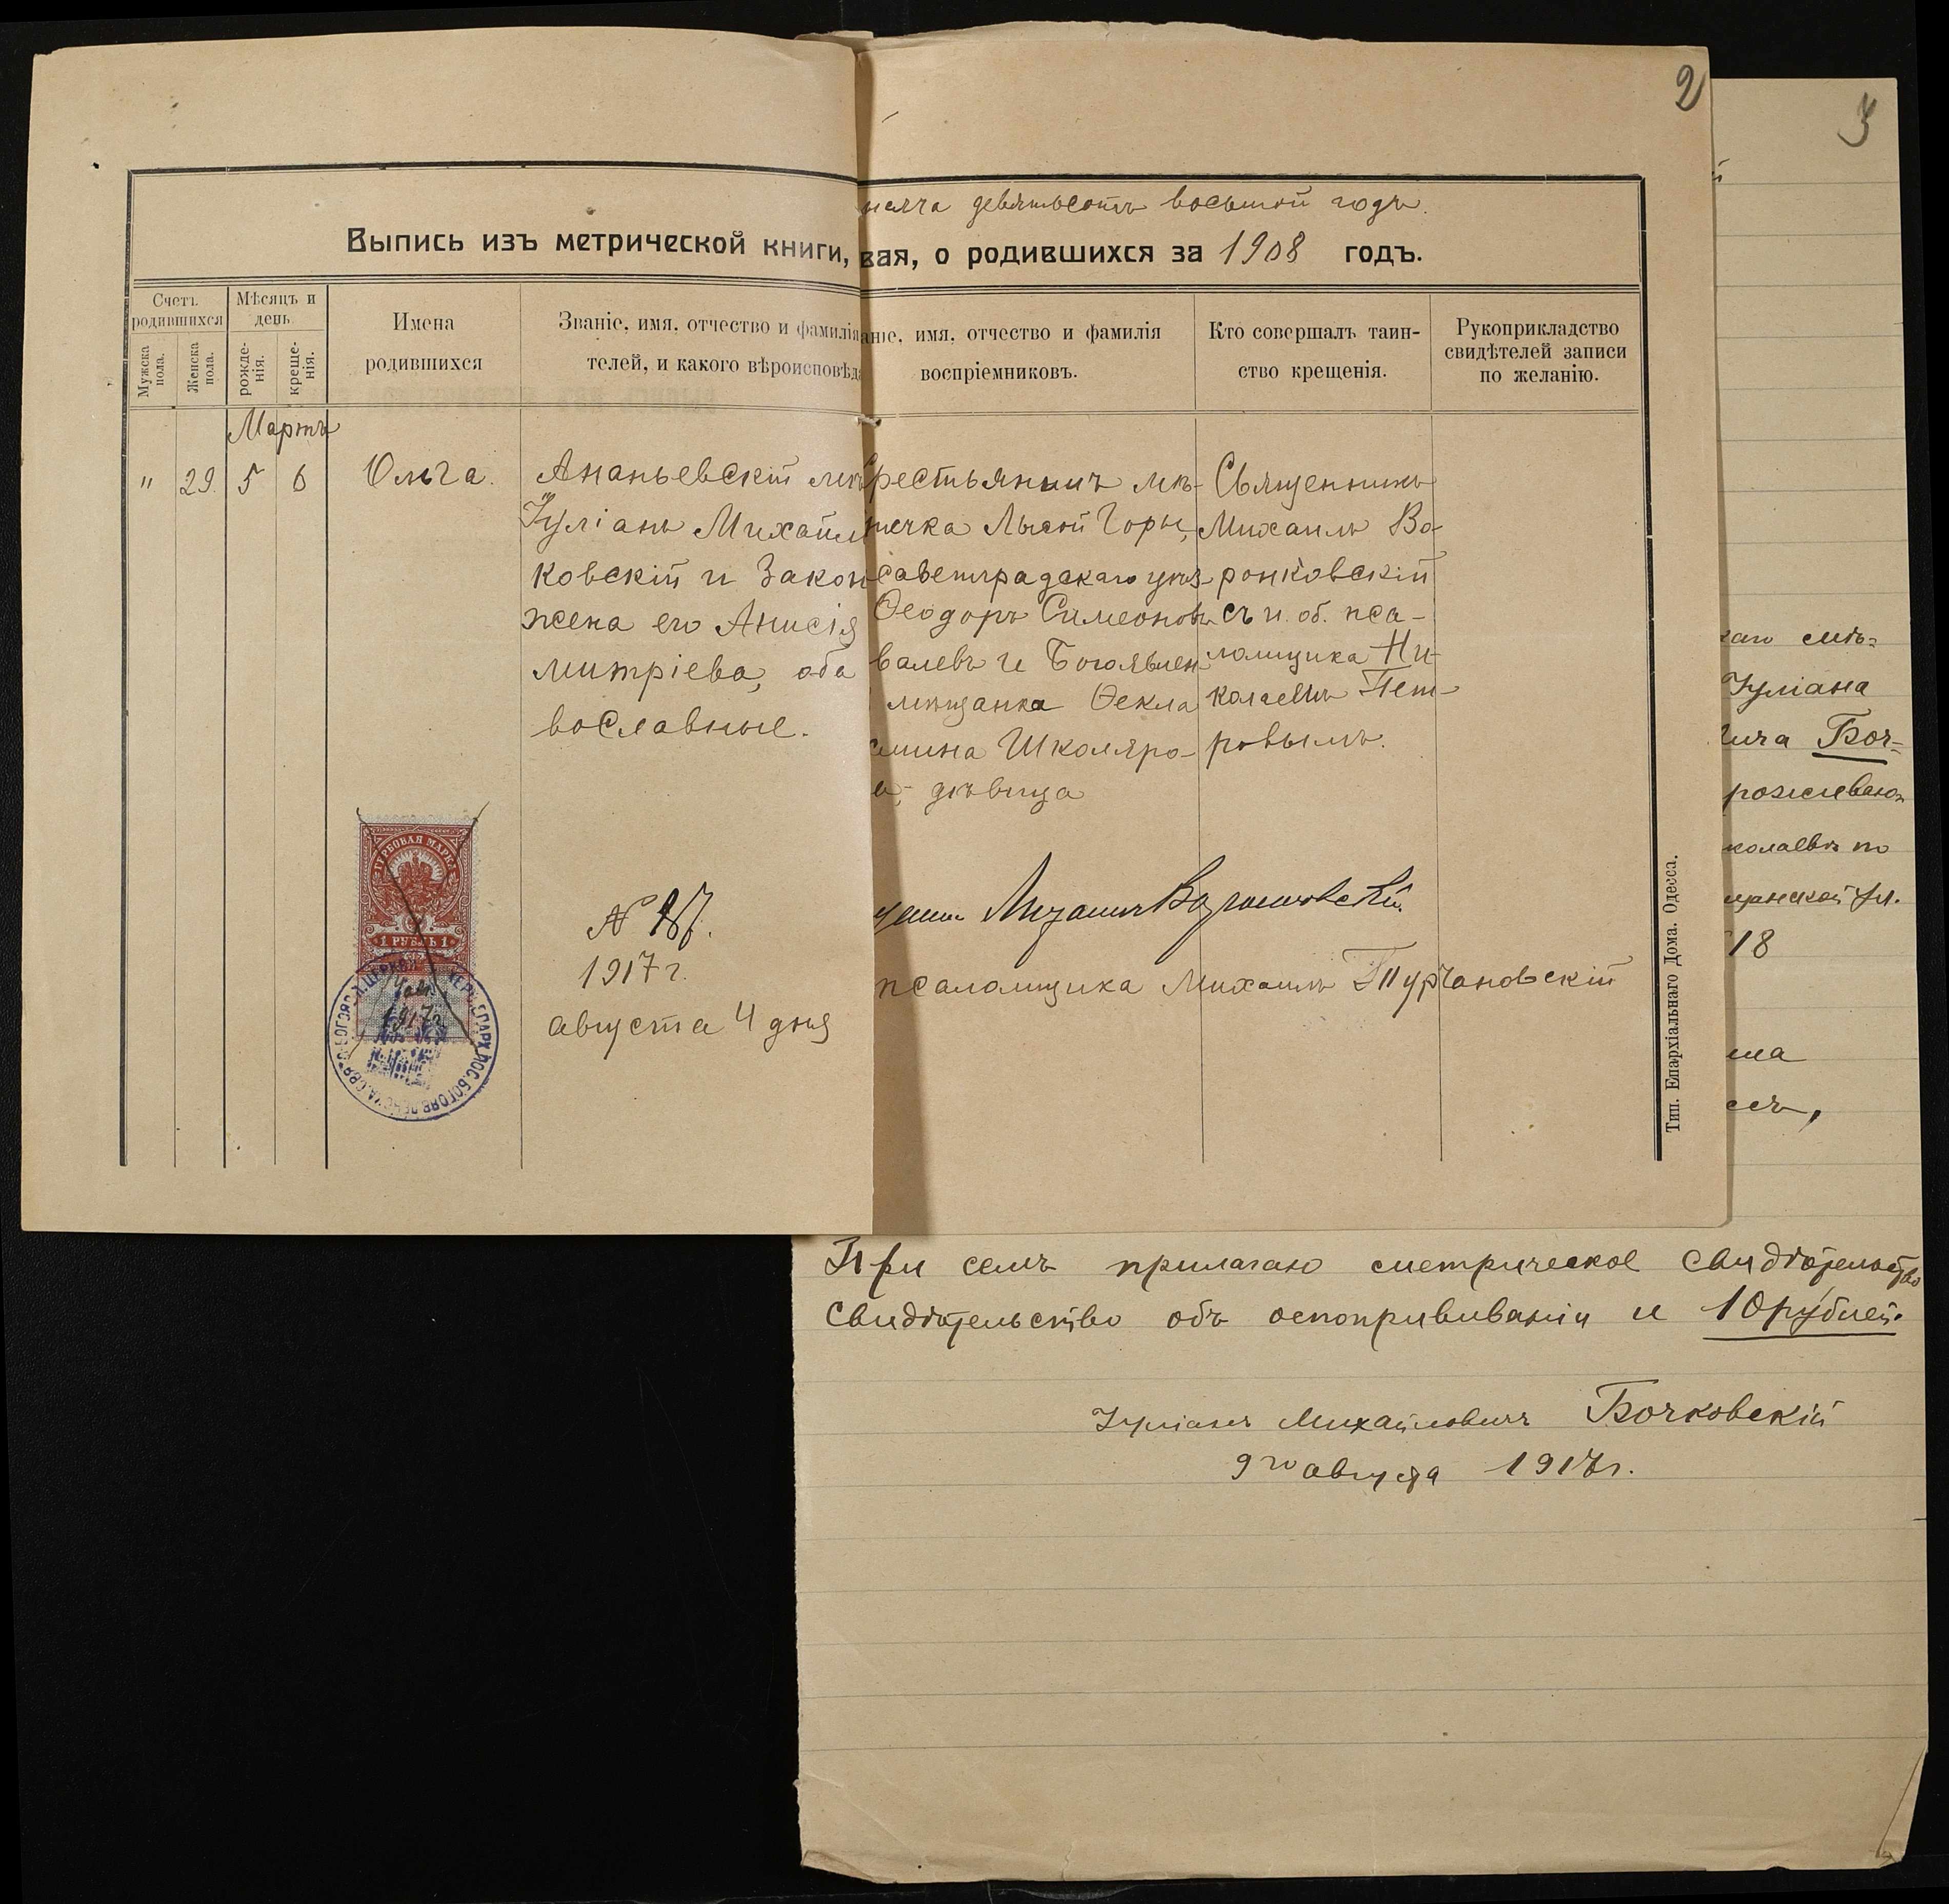 2
3
девятьсотъ восьмой годъ.
Выпись изъ метрической книги,
вая, о родившихся за 1908 годъ.
Счетъ родившихся
Мужска пола.
Женска пола.
Мѣсяцъ и день
рожде-
нія.
креще-
нія.
Имена
родившихся
Званіе, имя, отчество и фамилія
телей, и какого вѣроисповѣд
аніе, имя, отчество и фамилія
воспріемниковъ.
Кто совершалъ таин-
ство крещенія.
Рукоприкладство
свидѣтелей записи
по желанію.
Мартъ
" 29. 5 6
Ольга.
Ананьевскій
Іуліанъ Михайл
ковскій и закон
жена его Анисія
митріева, оба
вославные.
рестьянинъ мѣ-
течка Лысой Горы,
саветградскаго уѣз-
Ѳеодоръ Симеонов
валевъ и Богоявлен
мѣщанка Ѳекла
Школяро-
а, дѣвица
Священникъ
Михаилъ Во-
ронковскій
съ и. об. пса-
ломщика Ни-
колаемъ Пет-
ровымъ.
ГЕРБОВАЯ МАРКА
1 РУБЛЬ 1
1917 г.
№
1917 г.
августа 4 дня
Михаилъ Воронковскій
псаломщика Михаилъ Турчановскій
Тип. Епархіальнаго Дома. Одесса.
Іуліана
ича Боч-
роживаю-
колаевѣ по
ул.
18
При семъ прилагаю метрическое свидѣтельство
свидѣтельство объ оспопрививаніи и 10 рублей.
Іуліанъ Михайловичъ Бочковскій
9го августа 1917 г.